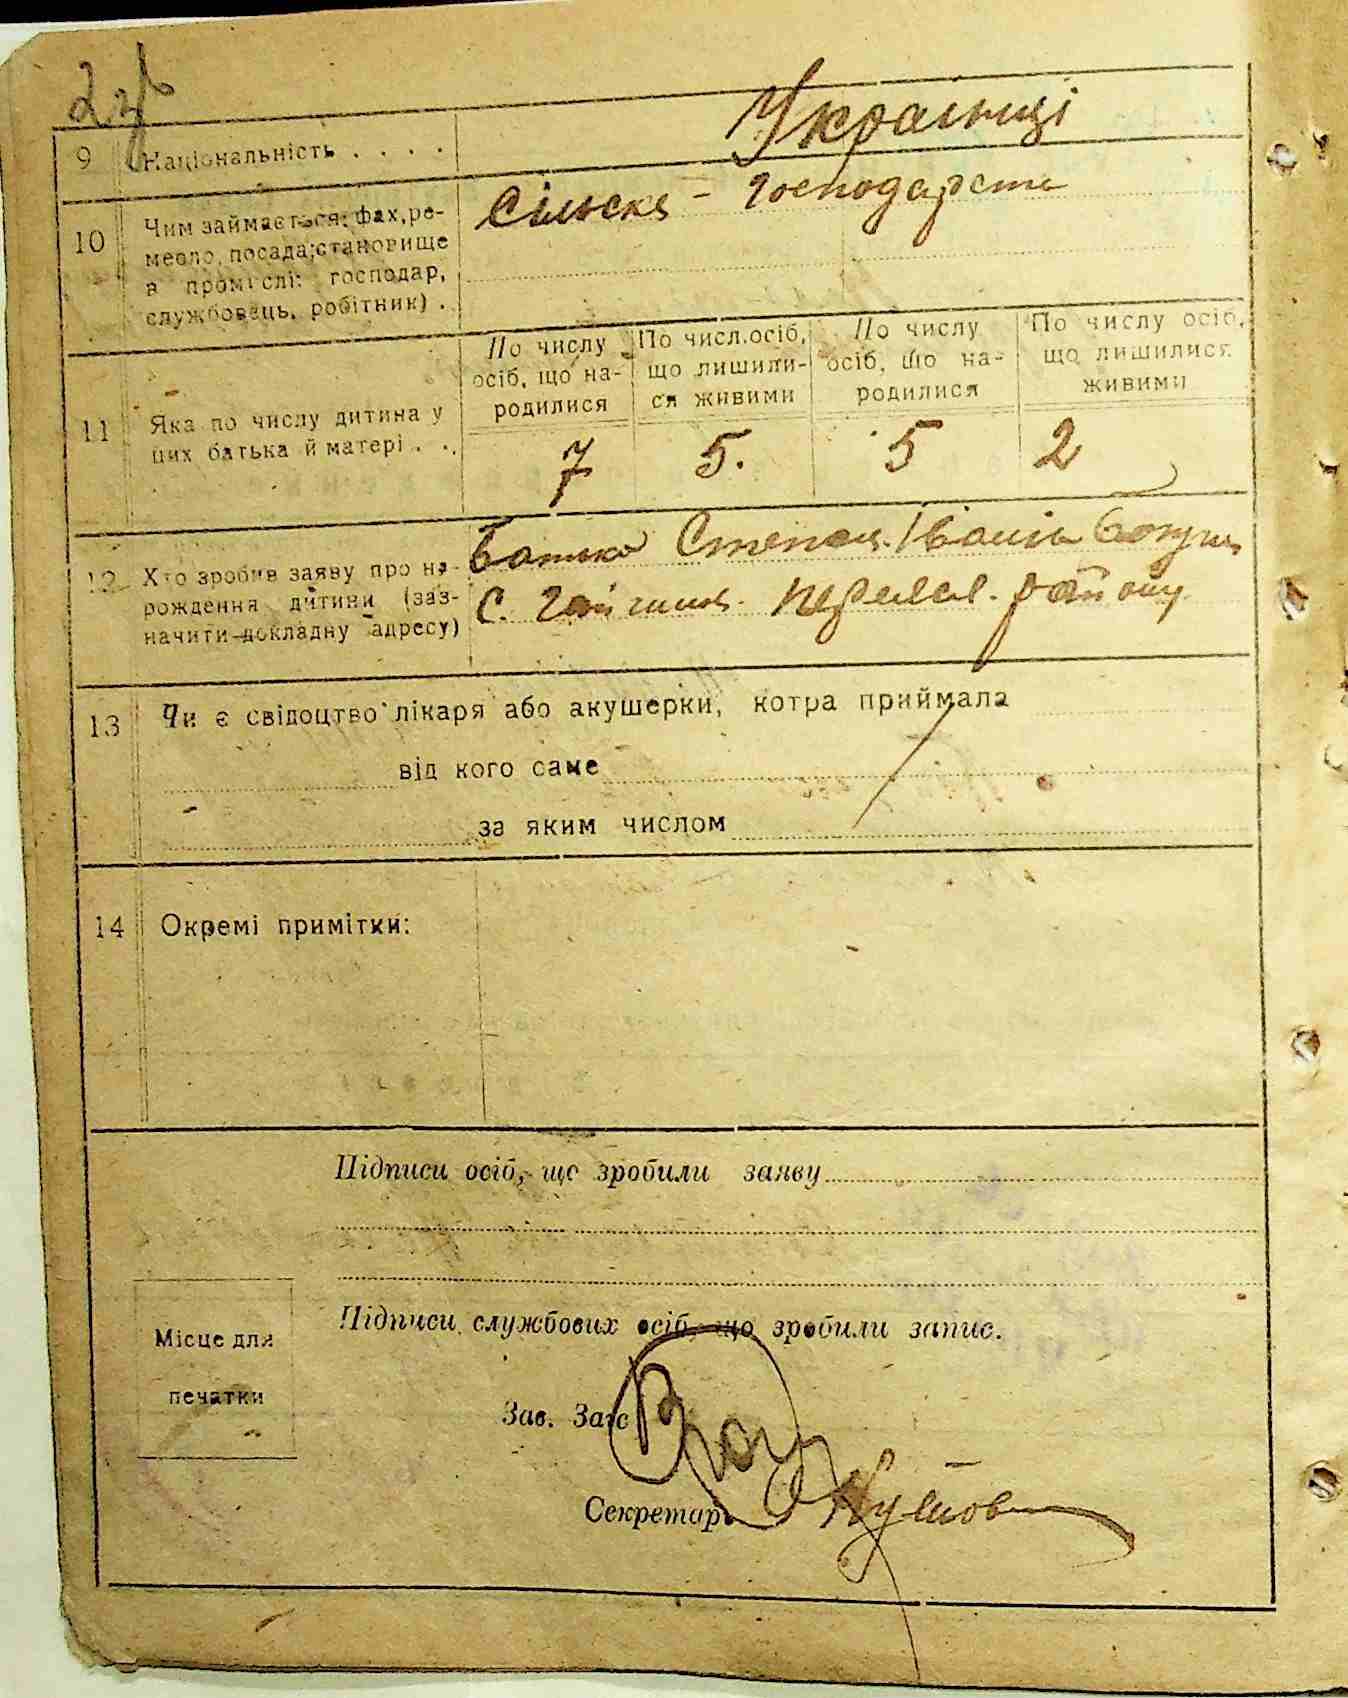 2зв
9 Національність . . . . Українці
10 Чим займається: фах, ре-
месло, посада; становище
в промислі: господар,
службовець, робітник) .
Сільске - господарств
11 Яка по числу дитина у
цих батька й матері . . .
По числу осіб, що на-родилися
По числ. осіб, що лишили-ся живими
По числу осіб, що на-родилися
По числу осіб, що лишилися живими
7 5. 5 2
12 Хто зробив заяву про на-
рождення дитини (заз-
начити докладну адресу)
Батько Степан Іванів
С. Гайшин. Переясл. району
13 Чи є свідоцтво лікаря або акушерки, котра приймала
від кого саме
за яким числом
14 Окремі примітки:
Підписи осіб, що зробили заяву
Підписи службових осіб, що зробили запис.
Місце для
печатки
Зав. Загс
Секретар